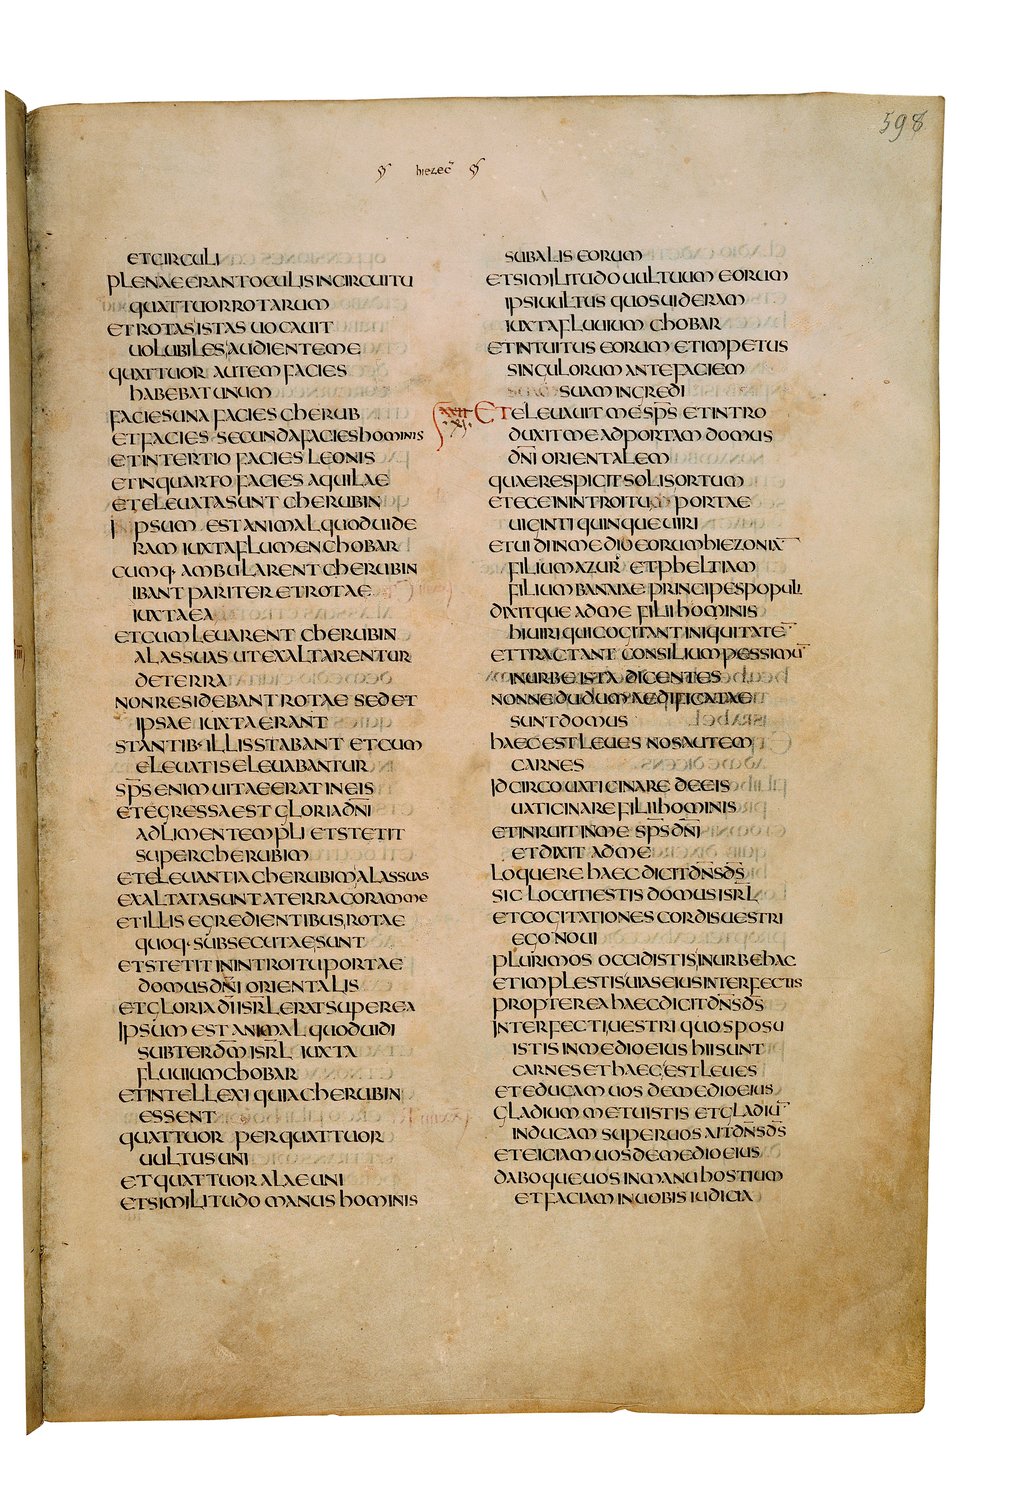 598
hiezec̄
ET CIRCULI
PLENAE ERANT OCULIS IN CIRCUITU
QUATTUOR ROTARUM
ET ROTAS ISTAS UOCAUIT
UOLUBILES AUDIENTE ME
QUATTUOR AUTEM FACIES
HABEBAT UNUM
FACIES UNA FACIES CHERUB
ET FACIES SECUNDA FACIES HOMINIS
ET IN TERTIO FACIES LEONIS
ET IN QUARTO FACIES AQUILAE
ET ELEUATA SUNT CHERUBIN
IPSUM EST ANIMAL QUOD UIDE
RAM IUXTA FLUMEN CHOBAR
CUMQ· AMBULARENT CHERUBIN
IBANT PARITER ET ROTAE
IUXTA EA
ET CUM LEUARENT CHERUBIN
ALAS SUAS UT EXALTARENTUR
DE TERRA
NON RESIDEBANT ROTAE SED ET
IPSAE IUXTA ERANT
STANTIB· ILLIS STABANT ET CUM
ELEUATIS ELEUABANTUR
SP̄S ENIM UITAE ERAT IN EIS
ET EGRESSA EST GLORIA DN̄I
AD LIMEN TEMPLI ET STETIT
SUPER CHERUBIM
ET ELEUANTIA CHERUBIM ALAS SUAS
EXALTATA SUNT A TERRA CORAM ME
ET ILLIS EGREDIENTIBUS ROTAE
QUOQ· SUBSECUTAE SUNT
ET STETIT IN INTROITU PORTAE
DOMUS DN̄I ORIENTALIS
ET GLORIA DĪ ISRL̄ ERAT SUPER EA
IPSUM EST ANIMAL QUOD UIDI
SUBTER DM̄ ISRL̄ IUXTA
FLUUIUM CHOBAR
ET INTELLEXI QUIA CHERUBIN
ESSENT
QUATTUOR PER QUATTUOR
UULTUS UNI
ET QUATTUOR ALAE UNI
ET SIMILITUDO MANUS HOMINIS
SUB ALIS EORUM
ET SIMILITUDO UULTUUM EORUM
IPSI UULTUS QUOS UIDERAM
IUXTA FLUUIUM CHOBAR
ET INTUITUS EORUM ET IMPETUS
SINGULORUM ANTE FACIEM
SUAM INGREDI
XI· ET ELEUAUIT ME SP̄S ET INTRO
DUXIT ME AD PORTAM DOMUS
DN̄I ORIENTALEM
QUAE RESPICIT SOLIS ORTUM
ET ECCE IN INTROITU PORTAE
UIGINTI QUINQUE UIRI
ET UIDI IN MEDIO EORUM HIEZONIĀ
FILIUM AZUR ET PHELTIAM
FILIUM BANAIAE PRINCIPES POPULI
DIXITQUE AD ME FILI HOMINIS
HI UIRI QUI COGITANT INIQUITATĒ
ET TRACTANT CONSILIUM PESSIMŪ
IN URBE ISTA DICENTES
NONNE DUDUM AEDIFICATAE
SUNT DOMUS
HAEC EST LEUES NOS AUTEM
CARNES
IDCIRCO UATICINARE DE EIS
UATICINARE FILII HOMINIS
ET INRUIT IN ME SP̄S DN̄I
ET DIXIT AD ME
LOQUERE HAEC DICIT DN̄S DS̄
SIC LOCUTI ESTIS DOMUS ISRL̄
ET COGITATIONES CORDIS UESTRI
EGO NOUI
PLURIMOS OCCIDISTIS IN URBE HAC
ET IMPLESTIS UIAS EIUS INTERFECTIS
PROPTEREA HAEC DICIT DN̄S DS̄
INTERFECTI UESTRI QUOS POSU
ISTIS IN MEDIO EIUS HII SUNT
CARNES ET HAEC EST LEUES
ET EDUCAM UOS DE MEDIO EIUS
GLADIUM METUISTIS ET GLADIŪ
INDUCAM SUPER UOS AIT DN̄S DS̄
ET EICIAM UOS DE MEDIO EIUS
DABOQUE UOS IN MANU HOSTIUM
ET FACIAM IN UOBIS IUDICIA